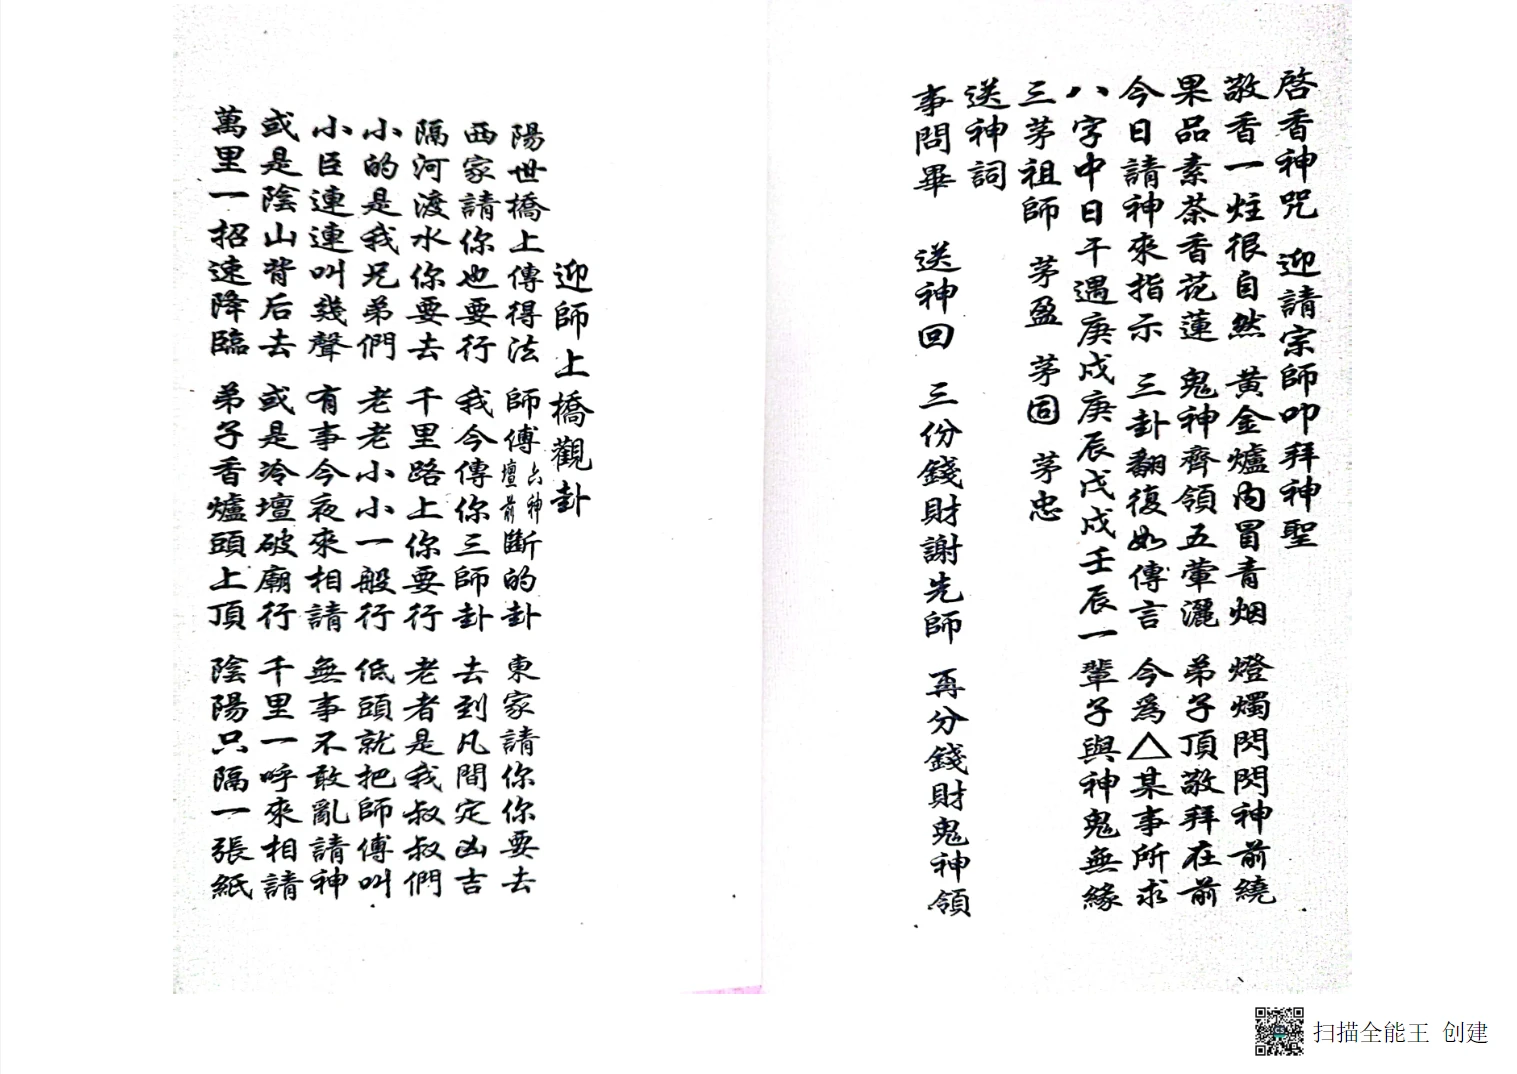 啓香神咒　迎請宗師叩拜神聖
敬香一炷很自然　黃金爐內冒青烟　燈燭閃閃神前繞
果品素茶香花蓮　鬼神齊領五葷灑　弟子頂敬拜在前
今日請神來指示　三卦翻復如傳言　今為△某事所求
八字中日干遇庚戌庚辰戊戌壬辰一輩子與神鬼無緣
三茅祖師　茅盈　茅固　茅忠
送神詞
事問畢　送神回　三份錢財謝先師　再分錢財鬼神領
迎師上橋觀卦
陽世橋上傳得法　師傅六神壇前斷的卦　東家請你你要去
西家請你也要行　我今傳你三師卦　去到凡間定凶吉
隔河渡水你要去　千里路上你要行　老者是我叔叔們
小的是我兄弟們　老老小小一般行　低頭就把師傅叫
小臣連連叫幾聲　有事今夜來相請　無事不敢亂請神
或是陰山背后去　或是冷壇破廟行　千里一呼來相請
萬里一招速降臨　弟子香爐頭上頂　陰陽只隔一張紙
扫描全能王 创建